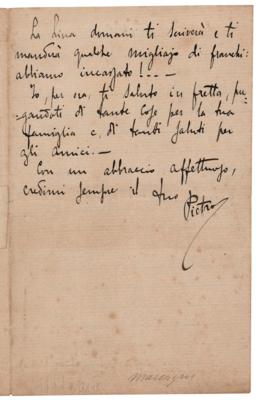 La Lina domani ti scriverà e ti
manderà qualche migliajo di franchi:
abbiamo incassato!..—
Io, per ora, ti saluto in fretta, pre-
gandoti di tante cose per la tua
famiglia e di tanti saluti per
gli amici.—
Con un abbraccio affettuoso,
credimi sempre il tuo
Pietro